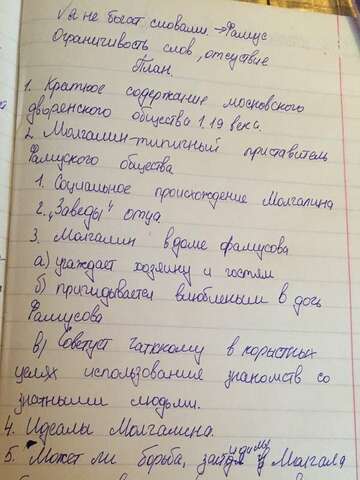 √ я не богат словами → Фамус
Ограничивость слов, отсуствие
План.
1. Краткое содержание московского
дворянского общества 1.19 века.
2. Молгалин-типичный приставитель
Фамуского общества
1. Социальное происхождение Молгалина
2. "Заведы" отца
3. Молгалин в доме фамусова
а) угаждает хозяину и гостям
б) пригидывается влюбленым в доч
Фамусова
в) Советуст Чатюкому в корыстных
целях использования знакомств со
знатными людьми.
4. Идеалы Молгалина.
5. Может ли борьба, идимы Молгал